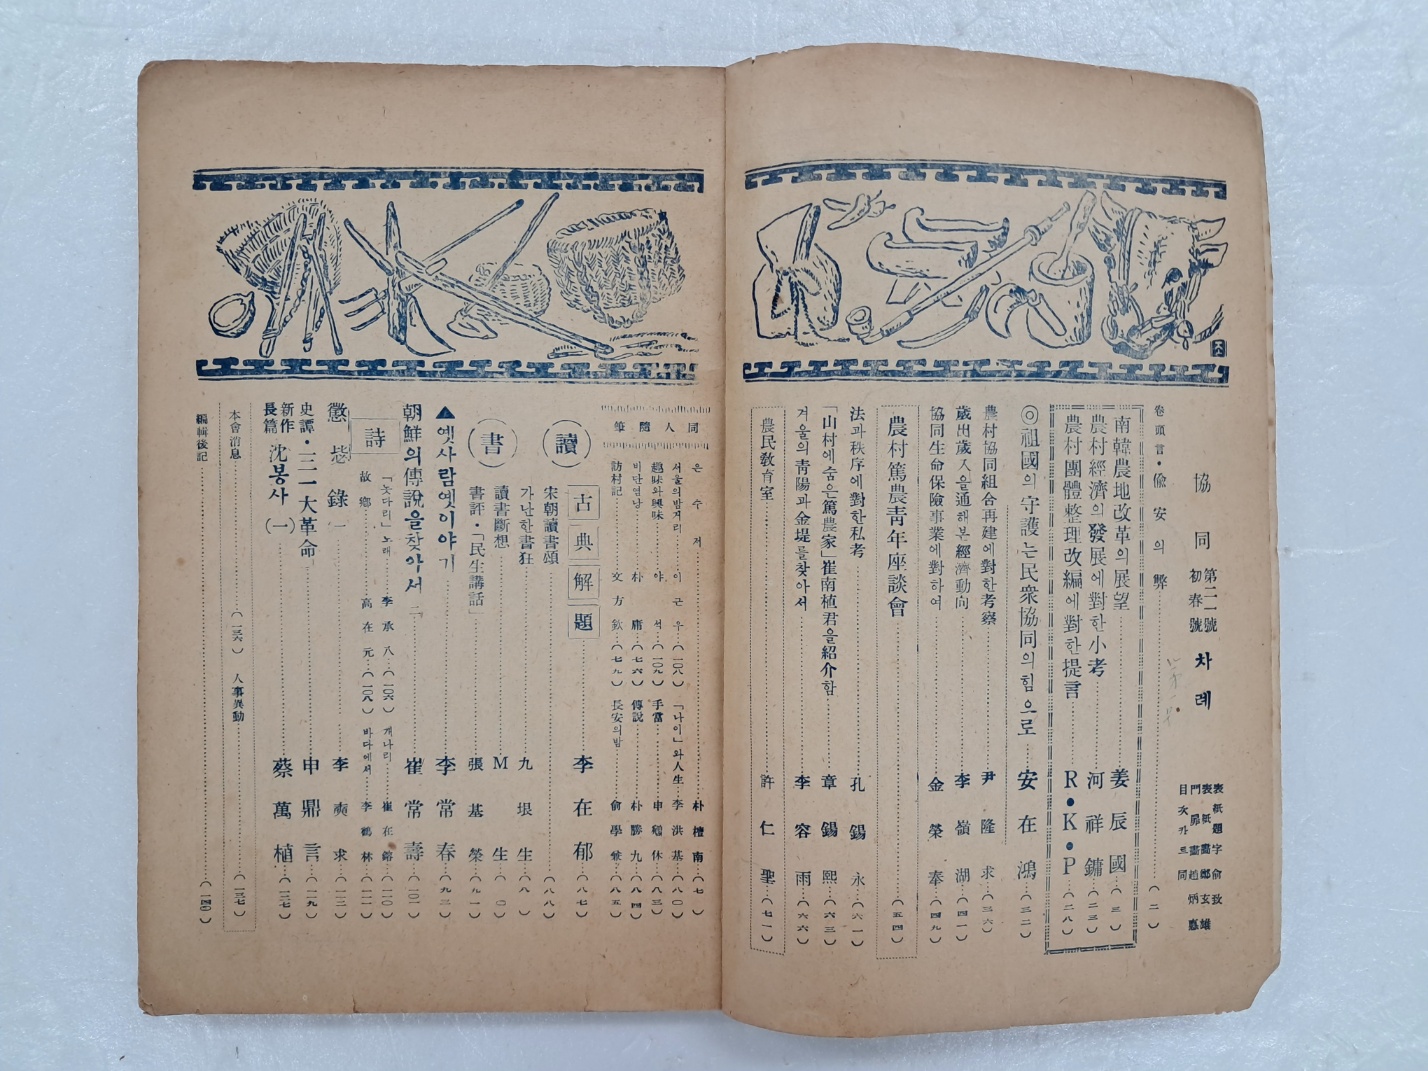 協同 第二一號 初春號 차례
表紙題字 兪致雄
表紙畵 鄭玄
門扉畵 趙炳悳
目次카트 同
卷頭言・偸安의弊 (二)
南韓農地改革의展望 姜辰國 (三)
農村經濟의發展에對한小考 河祥鏞 (二三)
農村團體整理改編에對한提言 R・K・P (二八)
◎祖國의守護는民衆協同의힘으로 安在鴻 (三二)
農村協同組合再建에對한考察 尹隆求 (三六)
歲出歲入을通해본經濟動向 李嶺湖 (四一)
協同生命保險事業에對하여 金榮奉 (四九)
農村篤農靑年座談會 (五四)
法과秩序에對한私考 孔錫永 (六一)
「山村에숨은篤農家」崔南植君을紹介함 章錫熙 (六三)
겨울의靑陽과金堤를찾아서 李容雨 (六六)
農民敎育室 許仁聖 (七一)
同人隨筆
은수저 朴檀南 (七)
서울의밤거리 이근우 (一〇八) 「나이」와人生 李洪基 (八〇)
趣味와興味 야석 (一〇九) 手當 申休 (八三)
비단염낭 朴庸 (七六) 傳說 朴勝九 (八四)
訪村記 文方欽 (七九) 長安의밤 兪學 (八五)
讀書
古典解題 李在郁 (八七)
宋朝讀書頌 (八八)
가난한書狂 九垠生 (八)
讀書斷想 M生
書評・「民生講話」 張基榮 (九一)
▲옛사람옛이야기 李常春 (九二)
朝鮮의傳說을찾아서 二 崔常壽 (一〇一)
詩
「놋다리」노래 李承八 (一〇六) 개나리 崔在 (一一〇)
故鄕 高在元 (一〇八) 바다에서 李鶴林 (一一一)
懲毖錄 一 李求 (一一二)
史譚・三一大革命 申鼎言 (一一九)
新作長篇 沈봉사 (一) 蔡萬植 (一二七)
本會消息 (一三六) 人事異動 (一三七)
編輯後記 (一四〇)